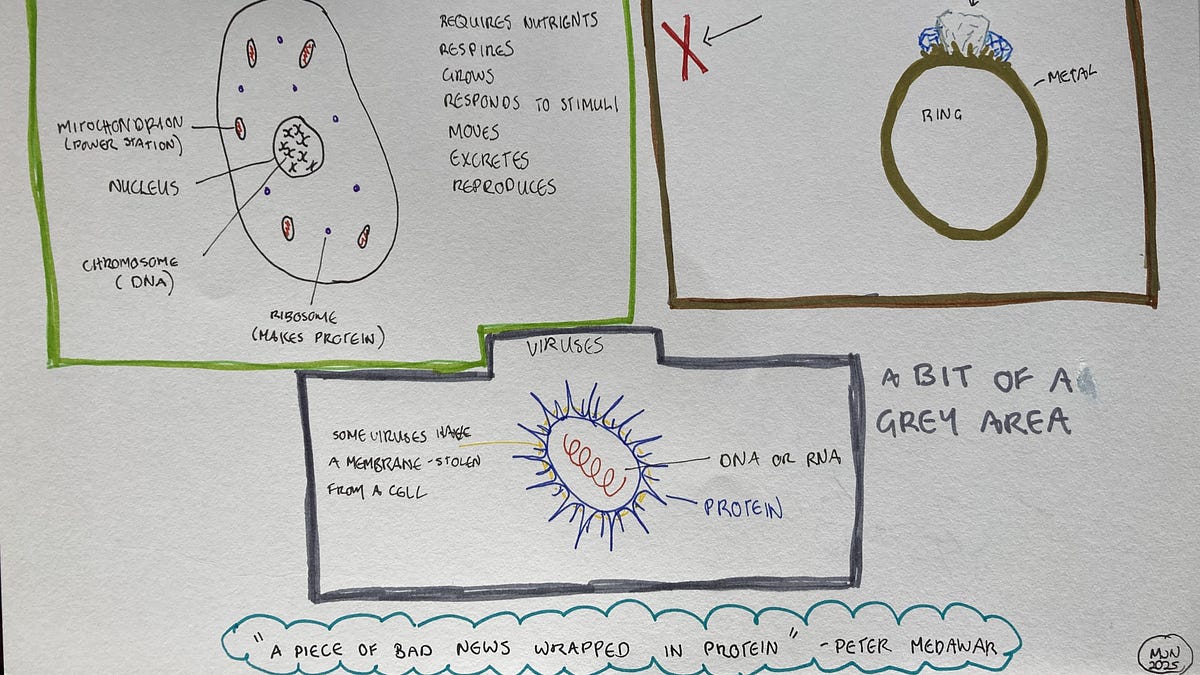 REQUIRES NUTRIENTS
RESPIRES
GROWS
RESPONDS TO STIMULI
MOVES
EXCRETES
REPRODUCES
MITOCHONDRION
(POWER STATION)
NUCLEUS
CHROMOSOME
(DNA)
RIBOSOME
(MAKES PROTEIN)
METAL
RING
VIRUSES
SOME VIRUSES HAVE
A MEMBRANE - STOLEN
FROM A CELL
DNA OR RNA
PROTEIN
A BIT OF A
GREY AREA
"A PIECE OF BAD NEWS WRAPPED IN PROTEIN" - PETER MEDAWAR
MJN
2025